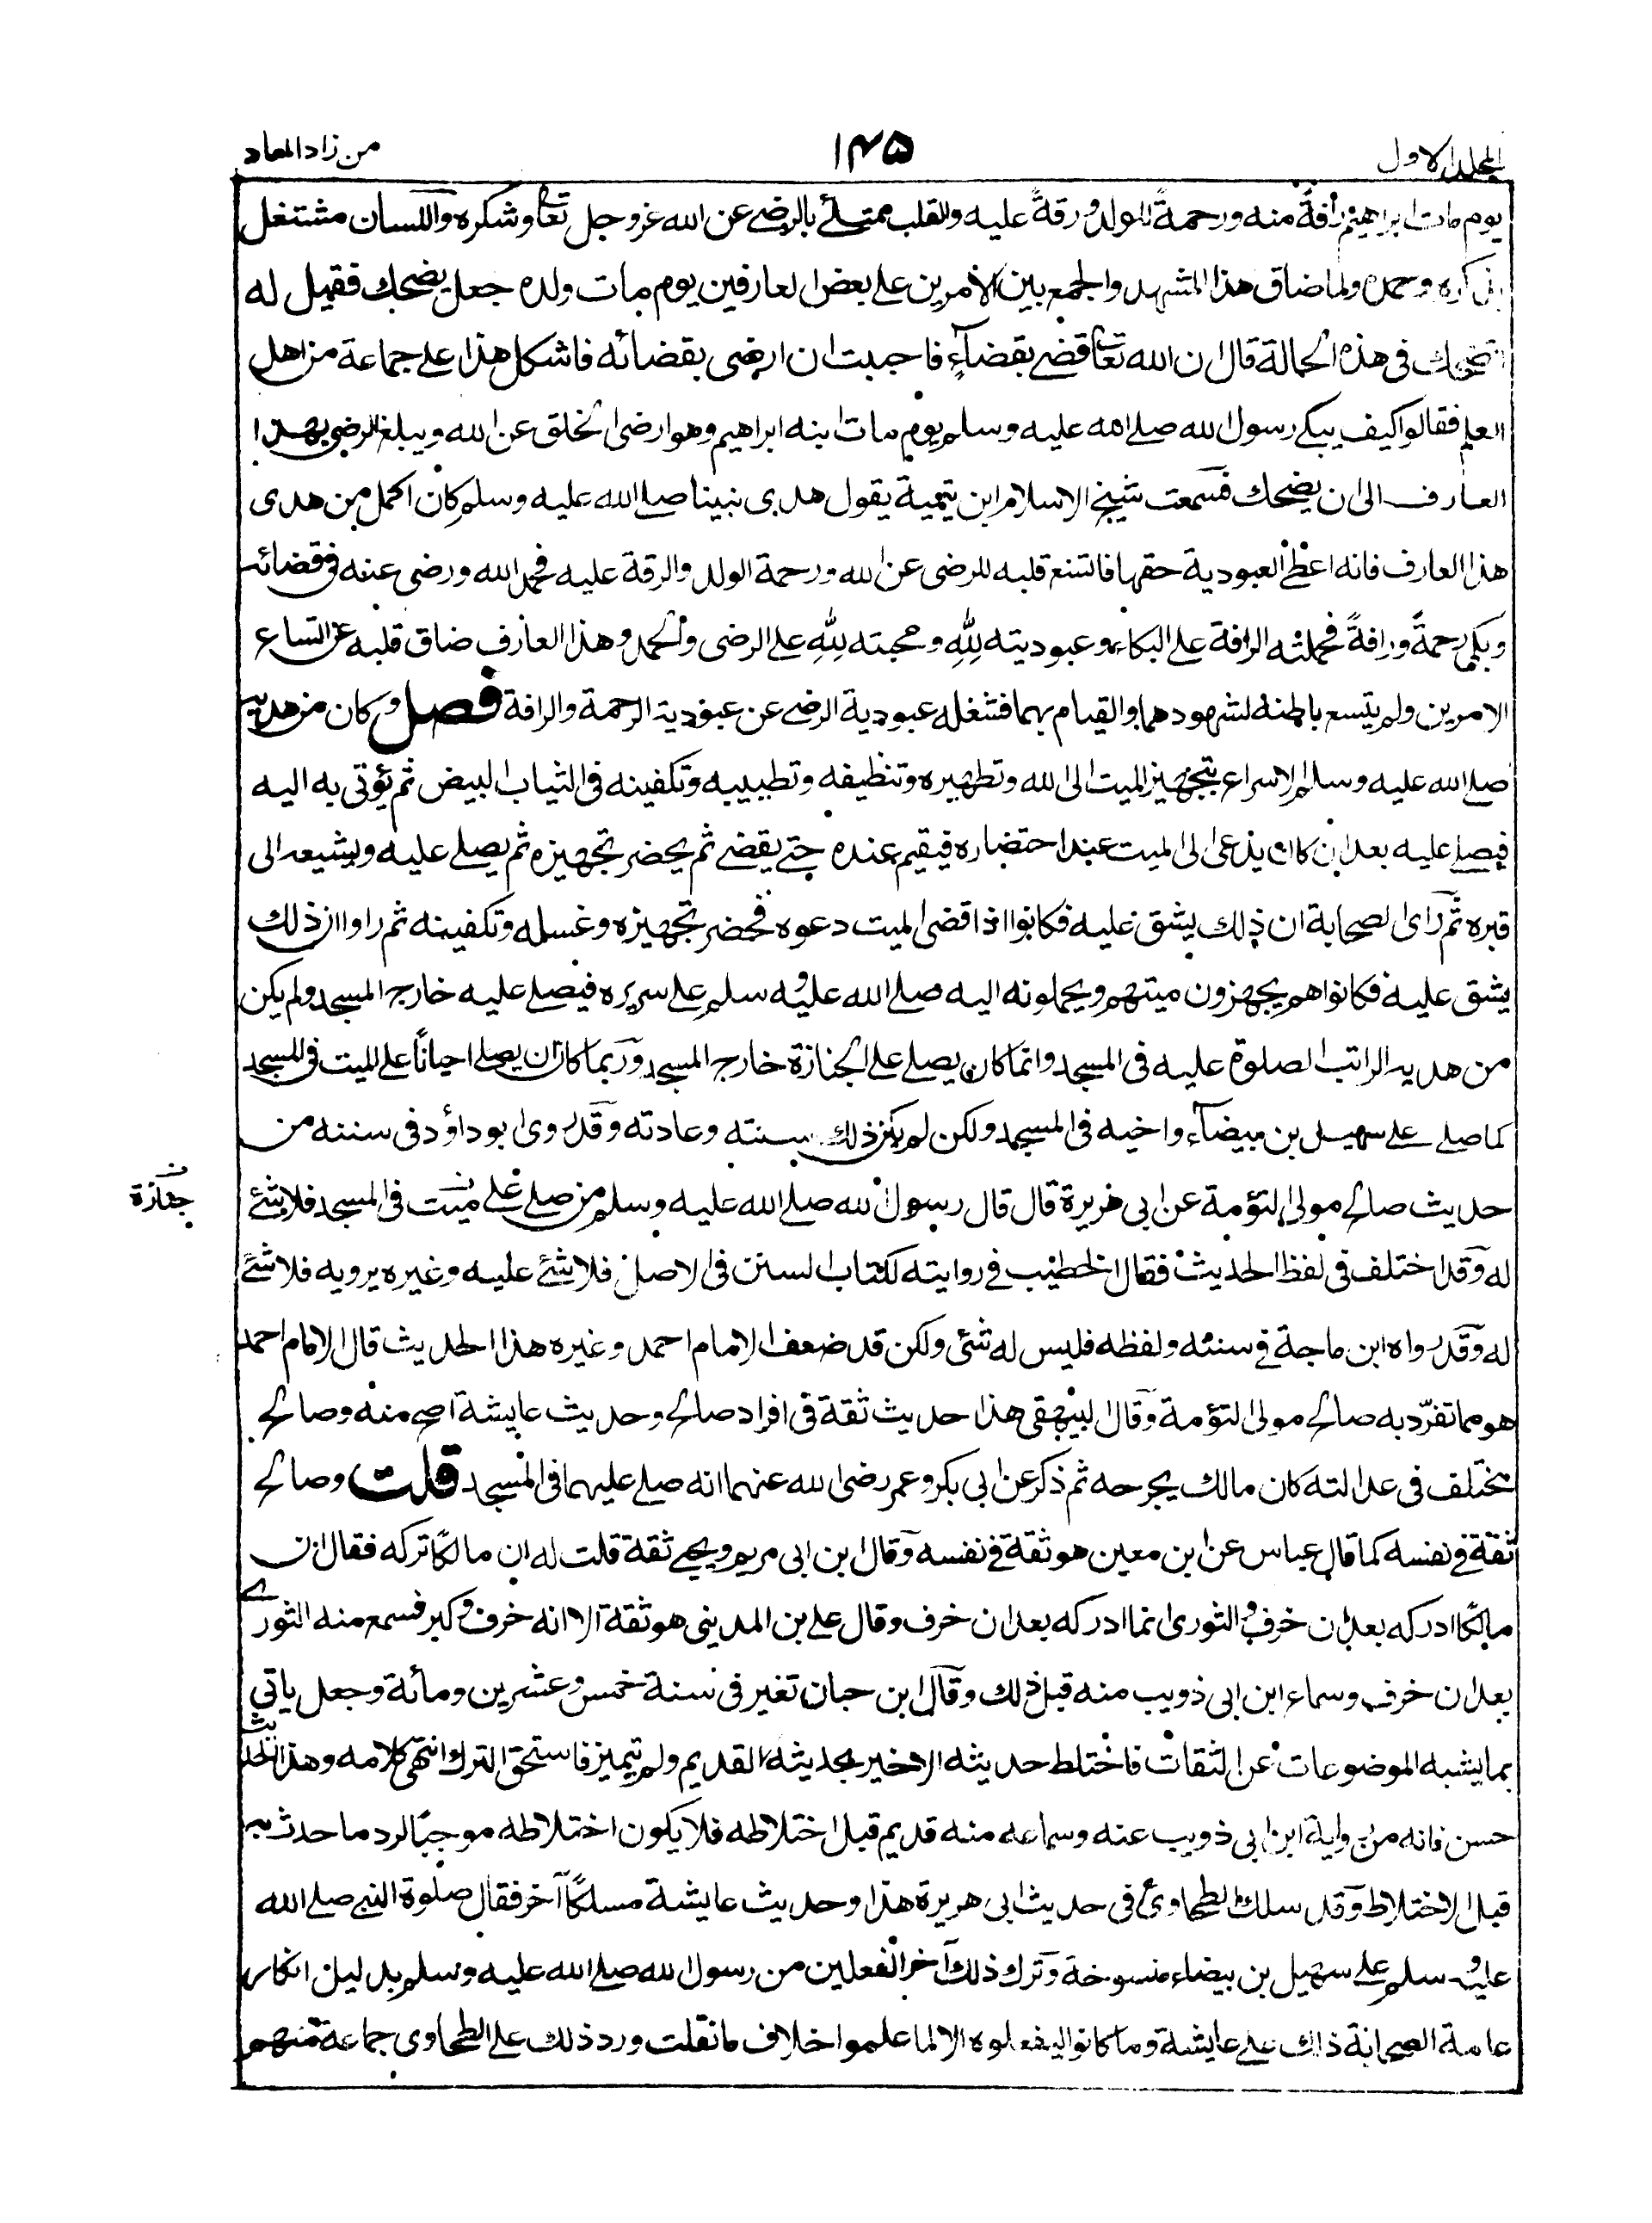 المجلد الاول
۱۴۵
من زاد المعاد
يوم مات ابراهيم رأفةً منه ورحمةً للولد ورقةً عليه والقلب ممتلئ بالرضى عن الله عز وجل تعالى وشكره واللسان مشتغل
بذكره وحمده ولما ضاق هذا المشهد والجمع بين الأمرين على بعض العارفين يوم مات ولده جعل يضحك فقيل له
اتضحك فى هذه الحالة قال ان الله تعالى قضى بقضآءٍ فاحببت ان ارضى بقضائه فاشكل هذا على جماعة من اهل
العلم فقالوا كيف يبكى رسول الله صلى الله عليه وسلم يوم مات ابنه ابراهيم وهو ارضى الخلق عن الله ويبلغ الرضى بهذا
العارف الى ان يضحك فسمعت شيخ الاسلام ابن تيمية يقول هدى نبينا صلى الله عليه وسلم كان اكمل من هدى
هذا العارف فانه اعطى العبودية حقها فاتسع قلبه للرضى عن الله ورحمة الولد والرقة عليه فحمد الله ورضى عنه فى قضائه
وبكى رحمةً ورافةً فحملته الرافة على البكاء وعبوديته لِلّٰهِ ومحبته لِلّٰهِ على الرضى والحمد وهذا العارف ضاق قلبه عن اتساع
الامرين ولم يتسع باطنه لشهودهما والقيام بهما فشغله عبودية الرضى عن عبودية الرحمة والرافة فصل وكان من هديه
صلى الله عليه وسلم الاسراع بتجهيز الميت الى الله وتطهيره وتنظيفه وتطييبه وتكفينه فى الثياب البيض ثم يؤتى به اليه
فيصلى عليه بعد ان كان يدعى الى الميت عند احتضاره فيقيم عنده حتى يقضى ثم يحضر تجهيزه ثم يصلى عليه ويشيعه الى
قبره ثم راى الصحابة ان ذلك يشق عليه فكانوا اذا قضى الميت دعوه فحضر تجهيزه وغسله وتكفينه ثم راوا ان ذلك
يشق عليه فكانوا هم يجهزون ميتهم ويحملونه اليه صلى الله عليه وسلم على سريره فيصلى عليه خارج المسجد ولم يكن
من هديه الراتب الصلوة عليه فى المسجد وانما كان يصلى على الجنازة خارج المسجد وربما كان ان يصلى احيانًا على الميت فى المسجد
كما صلى على سهيل بن بيضآء واخيه فى المسجد ولكن لم يكن ذلك سنته وعادته وقد روى ابو داؤد فى سننه من
حديث صالح مولى التؤمة عن ابى هريرة قال قال رسول الله صلى الله عليه وسلم من صلى على ميت فى المسجد فلا شئ
ن جنازة
له وقد اختلف فى لفظ الحديث فقال الخطيب فى روايته لكتاب السنن فى الاصل فلا شئ عليه وغيره يرويه فلا شئ
له وقد رواه ابن ماجة فى سننه ولفظه فليس له شئ ولكن قد ضعف الامام احمد وغيره هذا الحديث قال الامام احمد
هو مما تفرّد به صالح مولى التؤمة وقال البيهقى هذا حديث ثقة فى افراد صالح وحديث عايشة اصح منه وصالح
مختلف فى عدالته كان مالك يجرحه ثم ذكر عن ابى بكر وعمر رضى الله عنهما انه صلى عليهما فى المسجد قلت وصالح
ثقة فى نفسه كما قال عباس عن ابن معين هو ثقة فى نفسه وقال ابن ابى مريم ويحيى ثقة قلت له ان مالكًا تركه فقال ان
مالكًا ادركه بعد ان خرف والثورى انما ادركه بعد ان خرف وقال على بن المدينى هو ثقة الا انه خرف وكبر فسمع منه الثورى
بعد ان خرف وسماع ابن ابى ذويب منه قبل ذلك وقال ابن حبان تغير فى سنة خمس وعشرين ومائة وجعل ياتى
بما يشبه الموضوعات عن الثقات فاختلط حديثه الاخير بحديثه القديم ولم يتميز فاستحق الترك انتهى كلامه وهذا الحديث
حسن فانه من رواية ابن ابى ذويب عنه وسماعه منه قديم قبل اختلاطه فلا يكون اختلاطه موجبًا لرد ما حدث به
قبل الاختلاط وقد سلك الطحاوى فى حديث ابى هريرة هذا وحديث عايشة مسلكًا آخر فقال صلوة النبى صلى الله
عليه وسلم على سهيل بن بيضاء منسوخة وترك ذلك آخر الفعلين من رسول الله صلى الله عليه وسلم بدليل انكار
عامة الصحابة ذلك على عايشة وما كانوا ليفعلوه الا لما علموا خلاف ما نقلت ورد ذلك على الطحاوى جماعة منهم